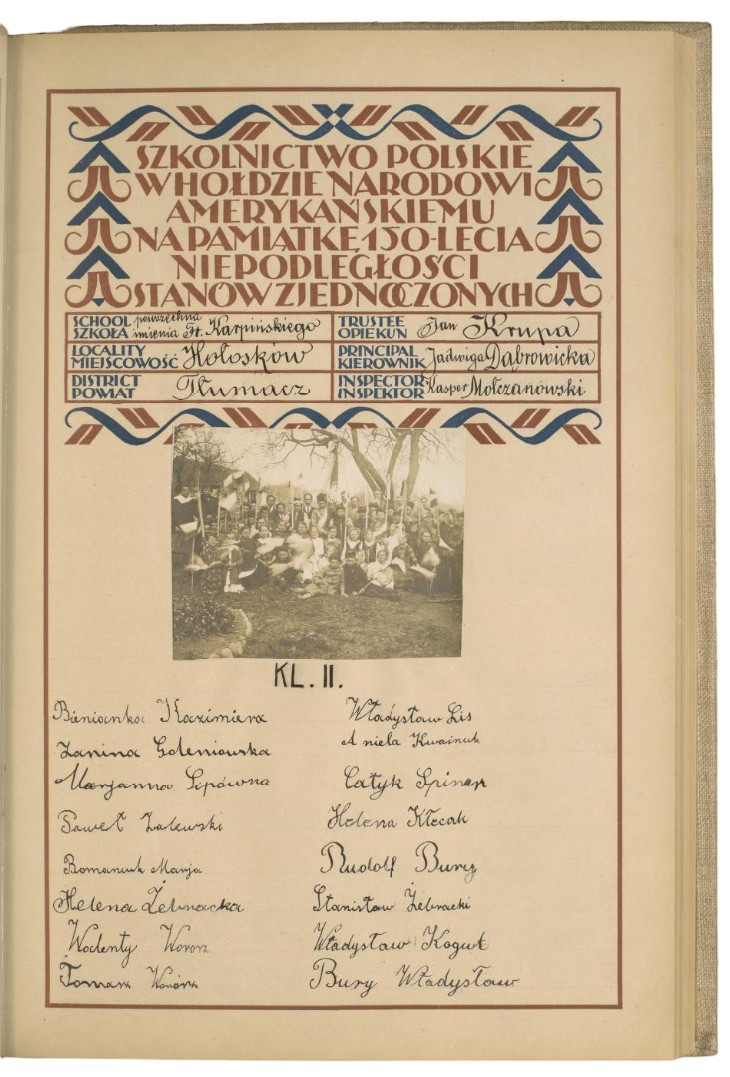 SZKOLNICTWO POLSKIE
W HOŁDZIE NARODOWI
AMERYKAŃSKIEMU
NA PAMIĄTKĘ 150-LECIA
NIEPODLEGŁOŚCI
STANÓW ZJEDNOCZONYCH
SCHOOL powszechna
SZKOŁA imienia Fr. Karpińskiego
TRUSTEE
OPIEKUN Jan Krupa
LOCALITY
MIEJSCOWOŚĆ Hołosków
PRINCIPAL
KIEROWNIK Jadwiga Dąbrowicka
DISTRICT
POWIAT Tłumacz
INSPECTOR
INSPEKTOR Kasper Mołczanowski
KL. II.
Bieniaska Kazimiera
Władysław Lis
Janina Goleniowska
Aniela
Marjanna Lipówna
Całyk
Paweł Zalewski
Helena Kłecak
Romaniuk Marja
Rudolf Bury
Helena Żebracka
Stanisław Żebracki
Walenty Woron
Władysław Kogut
Tomasz
Bury Władysław